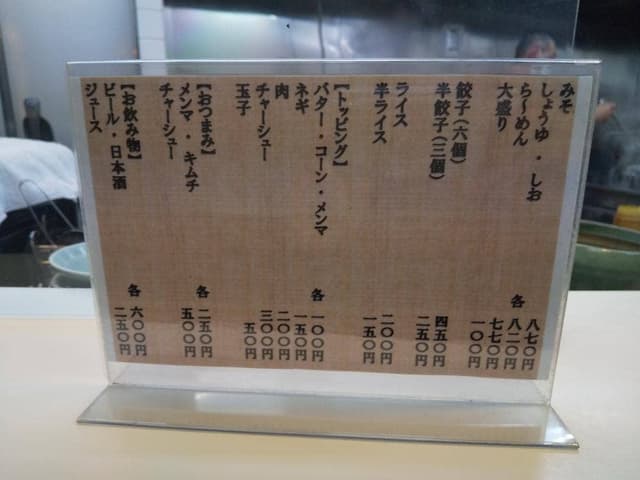 みそ 八七〇円
しょうゆ・しお 各 八二〇円
ら〜めん 七七〇円
大盛り 一〇〇円
餃子(六個) 四五〇円
半餃子(三個) 二五〇円
ライス 二〇〇円
半ライス 一五〇円
[トッピング]
バター・コーン・メンマ 各 一〇〇円
ネギ 一五〇円
肉 二〇〇円
チャーシュー 三〇〇円
玉子 五〇円
[おつまみ]
メンマ・キムチ 各 二五〇円
チャーシュー 五〇〇円
[お飲み物]
ビール・日本酒 各 六〇〇円
ジュース 二五〇円